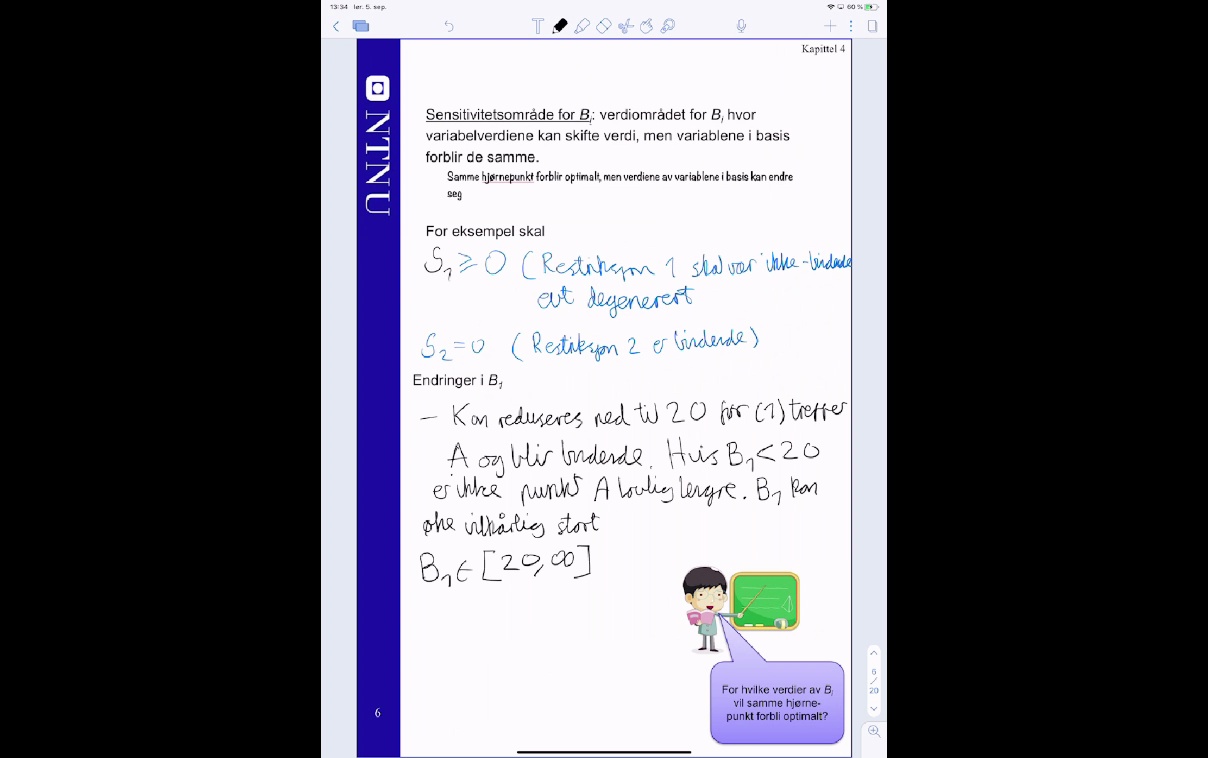 13:34 lør. 5. sep.
60 %
Kapittel 4
NTNU
Sensitivitetsområde for Bi: verdiområdet for Bi hvor
variabelverdiene kan skifte verdi, men variablene i basis
forblir de samme.
Samme hjørnepunkt forblir optimalt, men verdiene av variablene i basis kan endre
seg
For eksempel skal
S1 ≥ 0 (Restriksjon 1 skal vær ikke-bindende
evt degenerert
S2 = 0 (Restriksjon 2 er bindende)
Endringer i B1
- Kan reduseres ned til 20 før (1) treffer
A og blir bindende. Hvis B1 < 20
er ikke punkt A lovlig lengre. B1 kan
øke vilkårlig stort
B1 ∈ [20, ∞]
For hvilke verdier av Bi
vil samme hjørne-
punkt forbli optimalt?
6
6
/
20